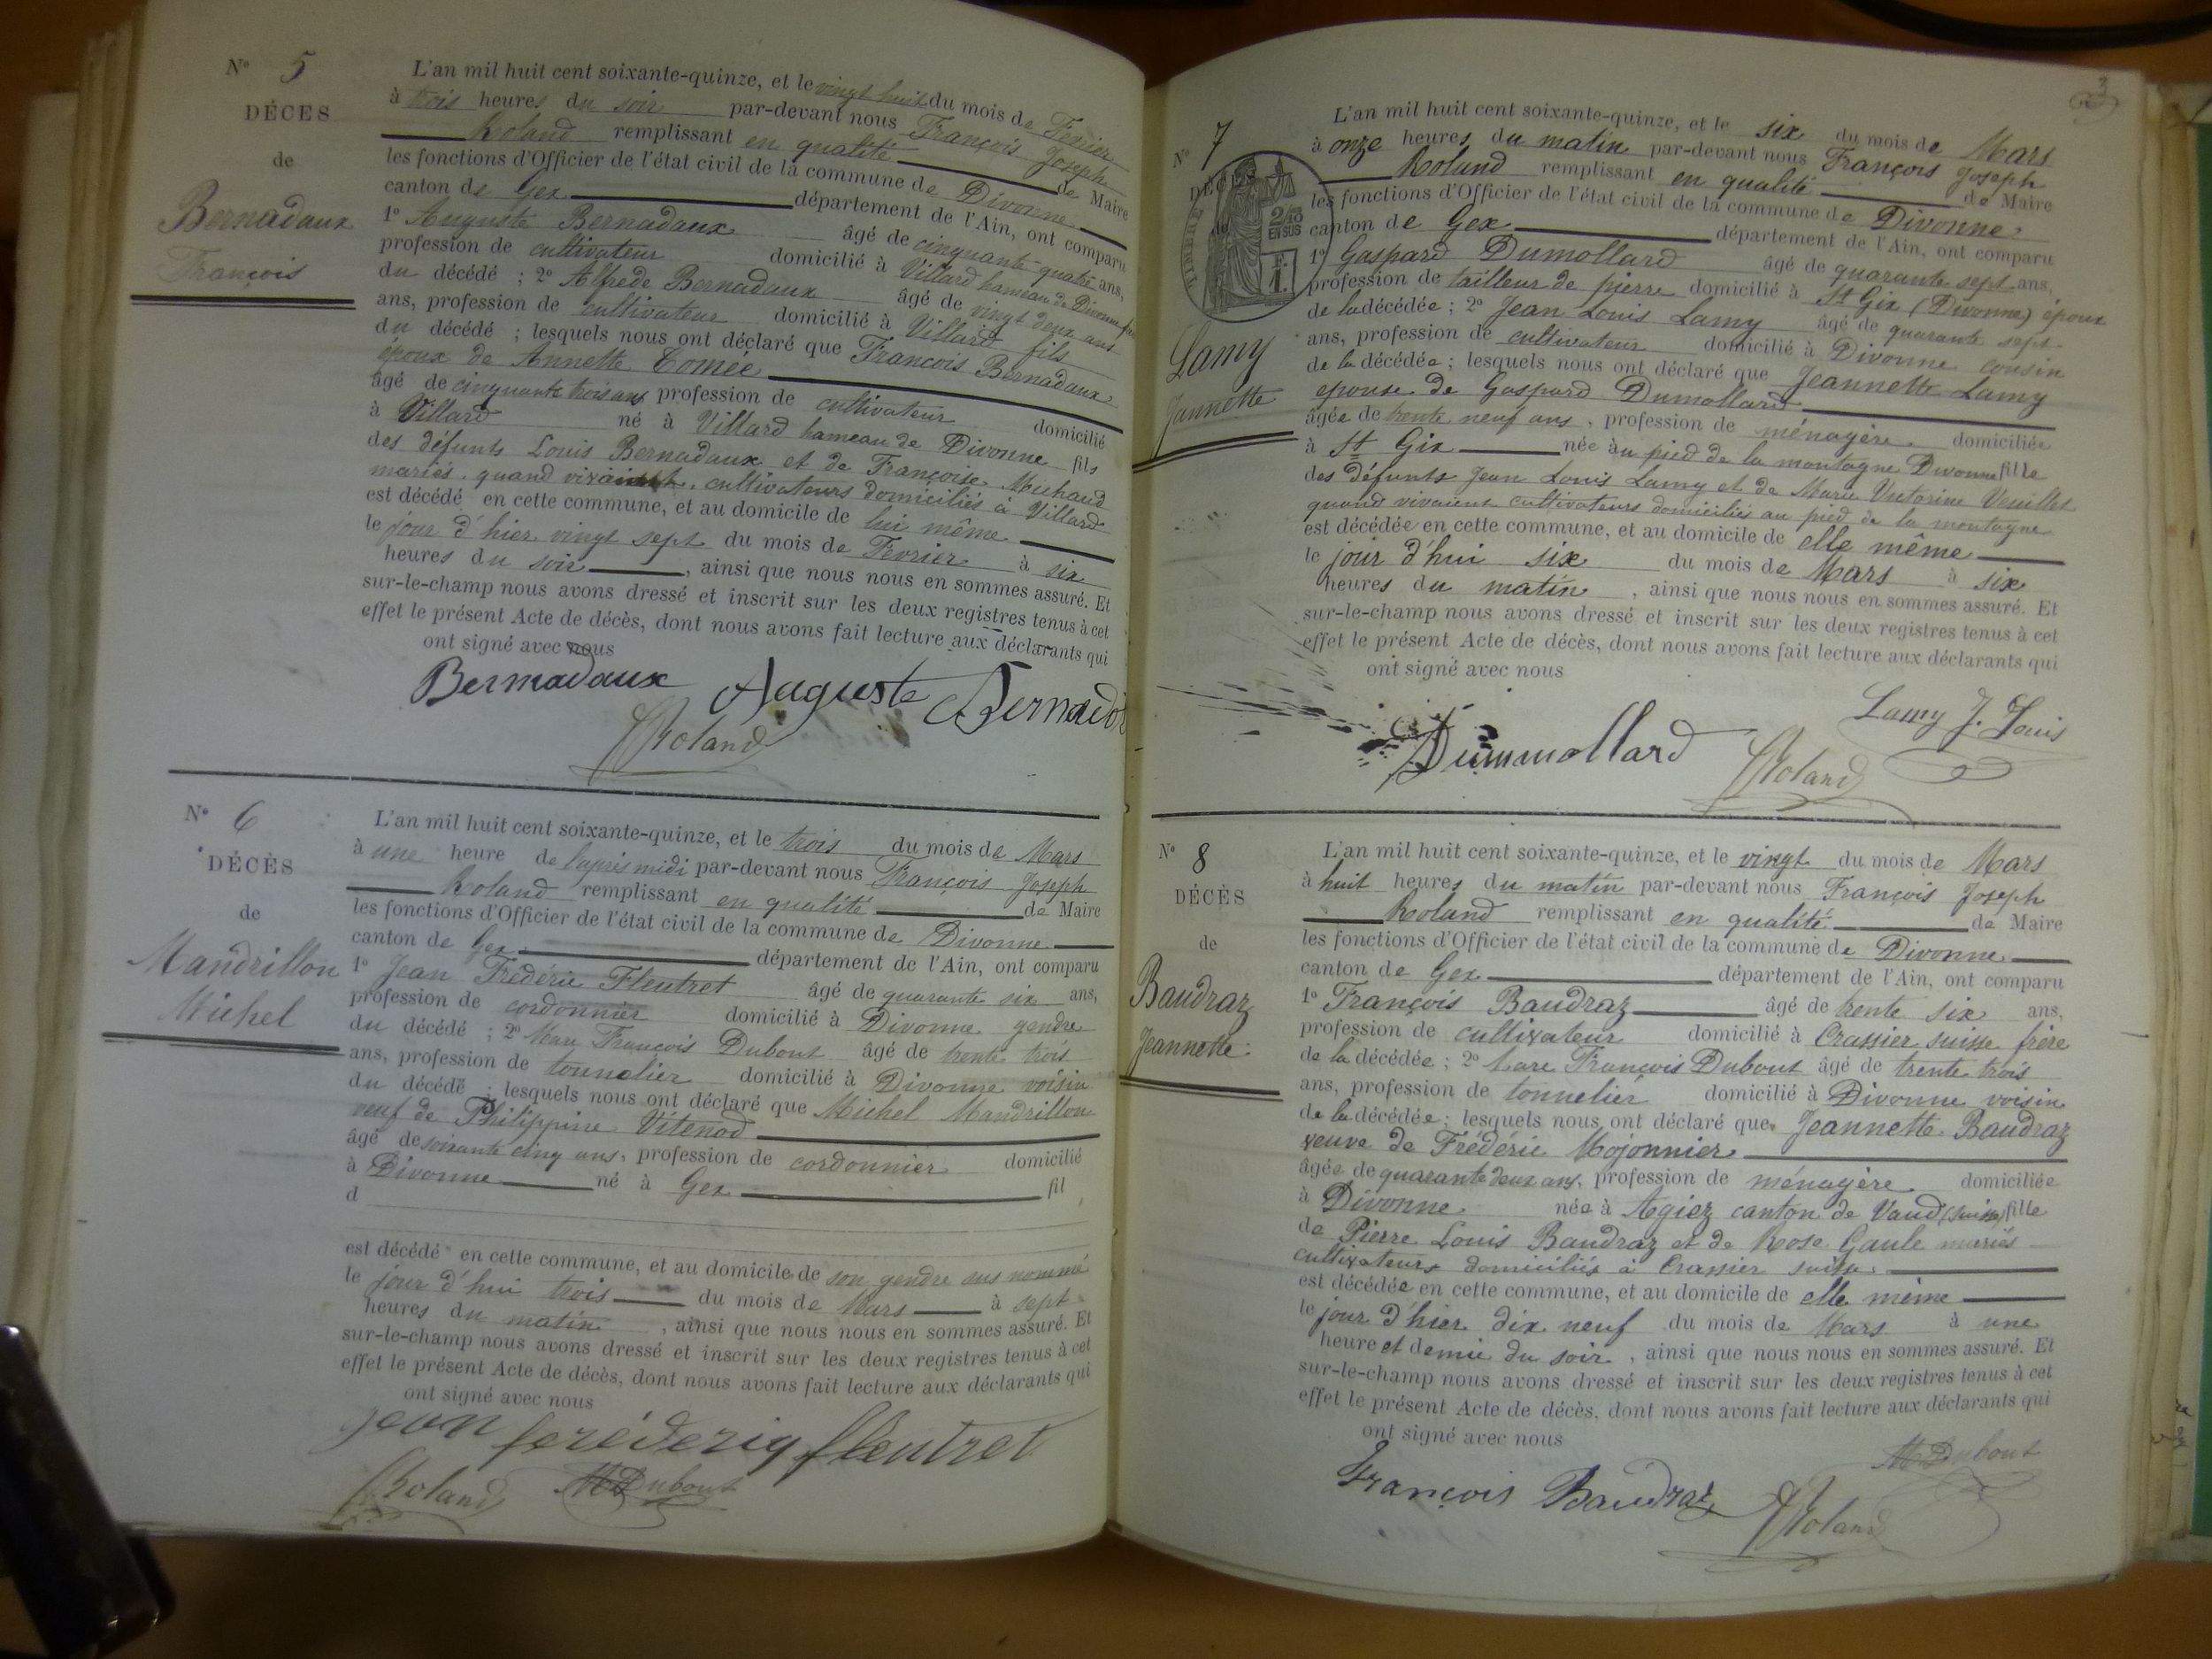 N° 5
DÉCES
de
Bernadaux
François
L'an mil huit cent soixante-quinze, et le vingt huit du mois de Fevrier
à trois heures du soir par-devant nous François Joseph
Roland remplissant en qualité de Maire
les fonctions d'Officier de l'état civil de la commune de Divonne
canton de Gex département de l'Ain, ont comparu
1° Auguste Bernadaux âgé de cinquante quatre ans,
profession de cultivateur domicilié à Villard hameau de Divonne
du décédé ; 2° Alfrede Bernadaux âgé de vingt deux ans
ans, profession de cultivateur domicilié à Villard fils
du décédé ; lesquels nous ont déclaré que François Bernadaux
époux de Annette Comée
âgé de cinquante trois ans profession de cultivateur domicilié
à Villard né à Villard hameau de Divonne fils
des défunts Louis Bernadaux et de Françoise Michaud
mariés quand vivaient cultivateurs domiciliés à Villard
est décédé en cette commune, et au domicile de lui même
le jour d'hier vingt sept du mois de Fevrier à six
heures du soir, ainsi que nous nous en sommes assuré. Et
sur-le-champ nous avons dressé et inscrit sur les deux registres tenus à cet
effet le présent Acte de décès, dont nous avons fait lecture aux déclarants qui
ont signé avec nous
Bernadaux Auguste Bernado
Roland
N° 6
DÉCÈS
de
Mandrillon
Michel
L'an mil huit cent soixante-quinze, et le trois du mois de Mars
à une heure de l'après midi par-devant nous François Joseph
Roland remplissant en qualité de Maire
les fonctions d'Officier de l'état civil de la commune de Divonne
canton de Gex département de l'Ain, ont comparu
1° Jean Frédéric Fleutret âgé de quarante six ans,
profession de cordonnier domicilié à Divonne gendre
du décédé ; 2° Marc François Dubout âgé de trente trois
ans, profession de tonnelier domicilié à Divonne voisin
du décédé ; lesquels nous ont déclaré que Michel Mandrillon
veuf de Philippine Vitenod
âgé de soixante cinq ans, profession de cordonnier domicilié
à Divonne né à Gex fil
d
est décédé en cette commune, et au domicile de son gendre sus nommé
le jour d'hui trois du mois de Mars à sept
heures du matin, ainsi que nous nous en sommes assuré. Et
sur-le-champ nous avons dressé et inscrit sur les deux registres tenus à cet
effet le présent Acte de décès, dont nous avons fait lecture aux déclarants qui
ont signé avec nous
jean frédériq fleutret
Roland M Dubout
3
N° 7
DÉCES
de
2/10
EN SUS
F.
1.
Lamy
Jannette
L'an mil huit cent soixante-quinze, et le six du mois de Mars
à onze heures du matin par-devant nous François Joseph
Roland remplissant en qualité de Maire
les fonctions d'Officier de l'état civil de la commune de Divonne
canton de Gex département de l'Ain, ont comparu
1° Gaspard Dumollard âgé de quarante sept ans,
profession de tailleur de pierre domicilié à St Gix (Divonne) époux
de la décédée ; 2° Jean Louis Lamy âgé de quarante sept
ans, profession de cultivateur domicilié à Divonne cousin
de la décédée ; lesquels nous ont déclaré que Jeannette Lamy
epouse de Gaspard Dumollard
âgée de trente neuf ans, profession de ménagère domiciliée
à St Gix née au pied de la montagne Divonne fille
des défunts Jean Louis Lamy et de Marie Victorine Veuillet
quand vivaient cultivateurs domiciliés au pied de la montagne
est décédée en cette commune, et au domicile de elle même
le jour d'hui six du mois de Mars à six
heures du matin, ainsi que nous nous en sommes assuré. Et
sur-le-champ nous avons dressé et inscrit sur les deux registres tenus à cet
effet le présent Acte de décès, dont nous avons fait lecture aux déclarants qui
ont signé avec nous
Lamy J. Louis
Dummollard Roland
N° 8
DÉCÈS
de
Baudraz
Jeannette
L'an mil huit cent soixante-quinze, et le vingt du mois de Mars
à huit heures du matin par-devant nous François Joseph
Roland remplissant en qualité de Maire
les fonctions d'Officier de l'état civil de la commune de Divonne
canton de Gex département de l'Ain, ont comparu
1° François Baudraz âgé de trente six ans,
profession de cultivateur domicilié à Crassier suisse frère
de la décédée ; 2° Marc François Dubout âgé de trente trois
ans, profession de tonnelier domicilié à Divonne voisin
de la décédée ; lesquels nous ont déclaré que Jeannette Baudraz
veuve de Frédéric Mojonnier
âgée de quarante deux ans, profession de ménagère domiciliée
à Divonne née à Agiez canton de Vaud (suisse) fille
de Pierre Louis Baudraz et de Rose Gaule mariés
cultivateurs domiciliés à Crassier suisse
est décédée en cette commune, et au domicile de elle même
le jour d'hier dix neuf du mois de Mars à une
heure et demie du soir, ainsi que nous nous en sommes assuré. Et
sur-le-champ nous avons dressé et inscrit sur les deux registres tenus à cet
effet le présent Acte de décès, dont nous avons fait lecture aux déclarants qui
ont signé avec nous
M Dubout
François Baudraz Roland